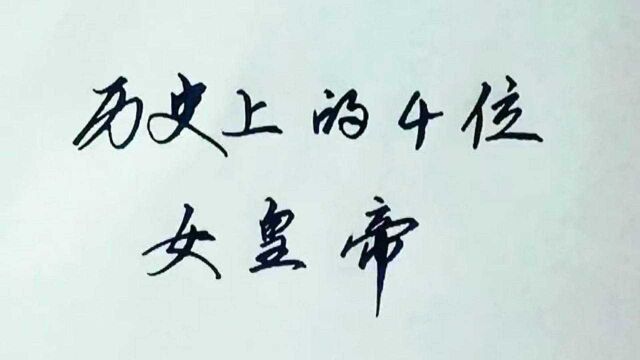 历史上的4位
女皇帝